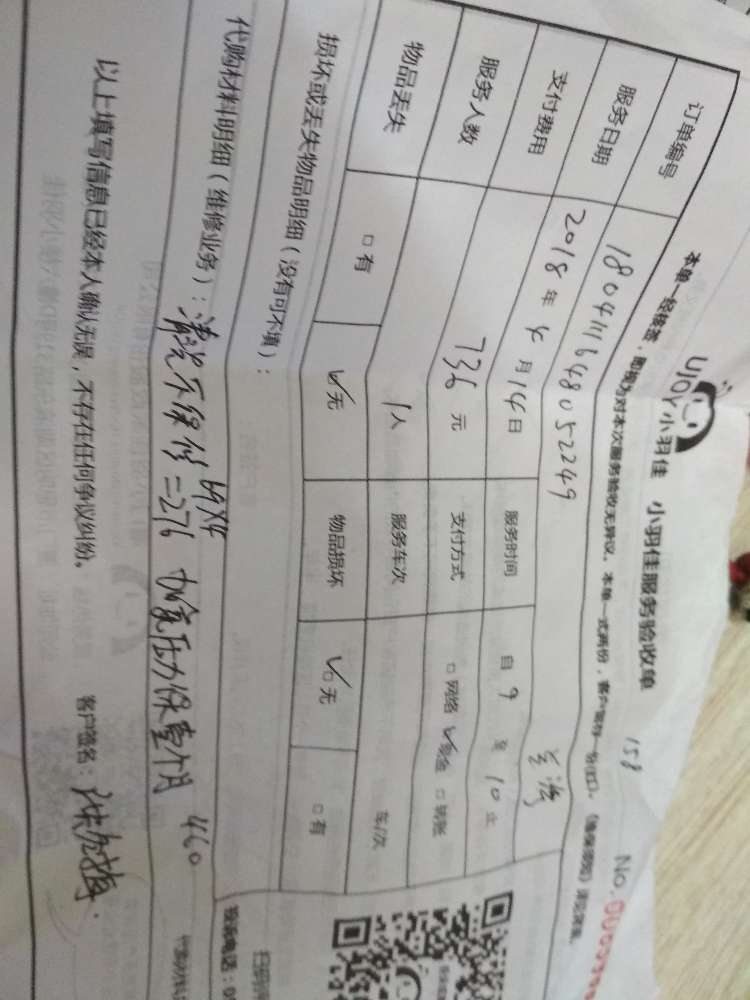 UJOY小羽佳 小羽佳服务验收单
158
NO.
本单一经接签，即视为对本次服务验收无异议。本单一式两份，客户留存一份
订单编号 1804111648052249
服务日期 2018年4月14日 服务时间 自9至10止
支付费用 736元 支付方式 □网络 ☑现金 □转账
服务人数 1人 服务车次 车/次
物品丢失 □有 ☑无 物品损坏 ☑无 □有
损坏或丢失物品明细（没有可不填）：
代购材料明细（维修业务）：清洗不保修 69X4=276 加氟压力保壹个月 460
以上填写信息已经本人确认无误，不存在任何争议纠纷。 客户签名：